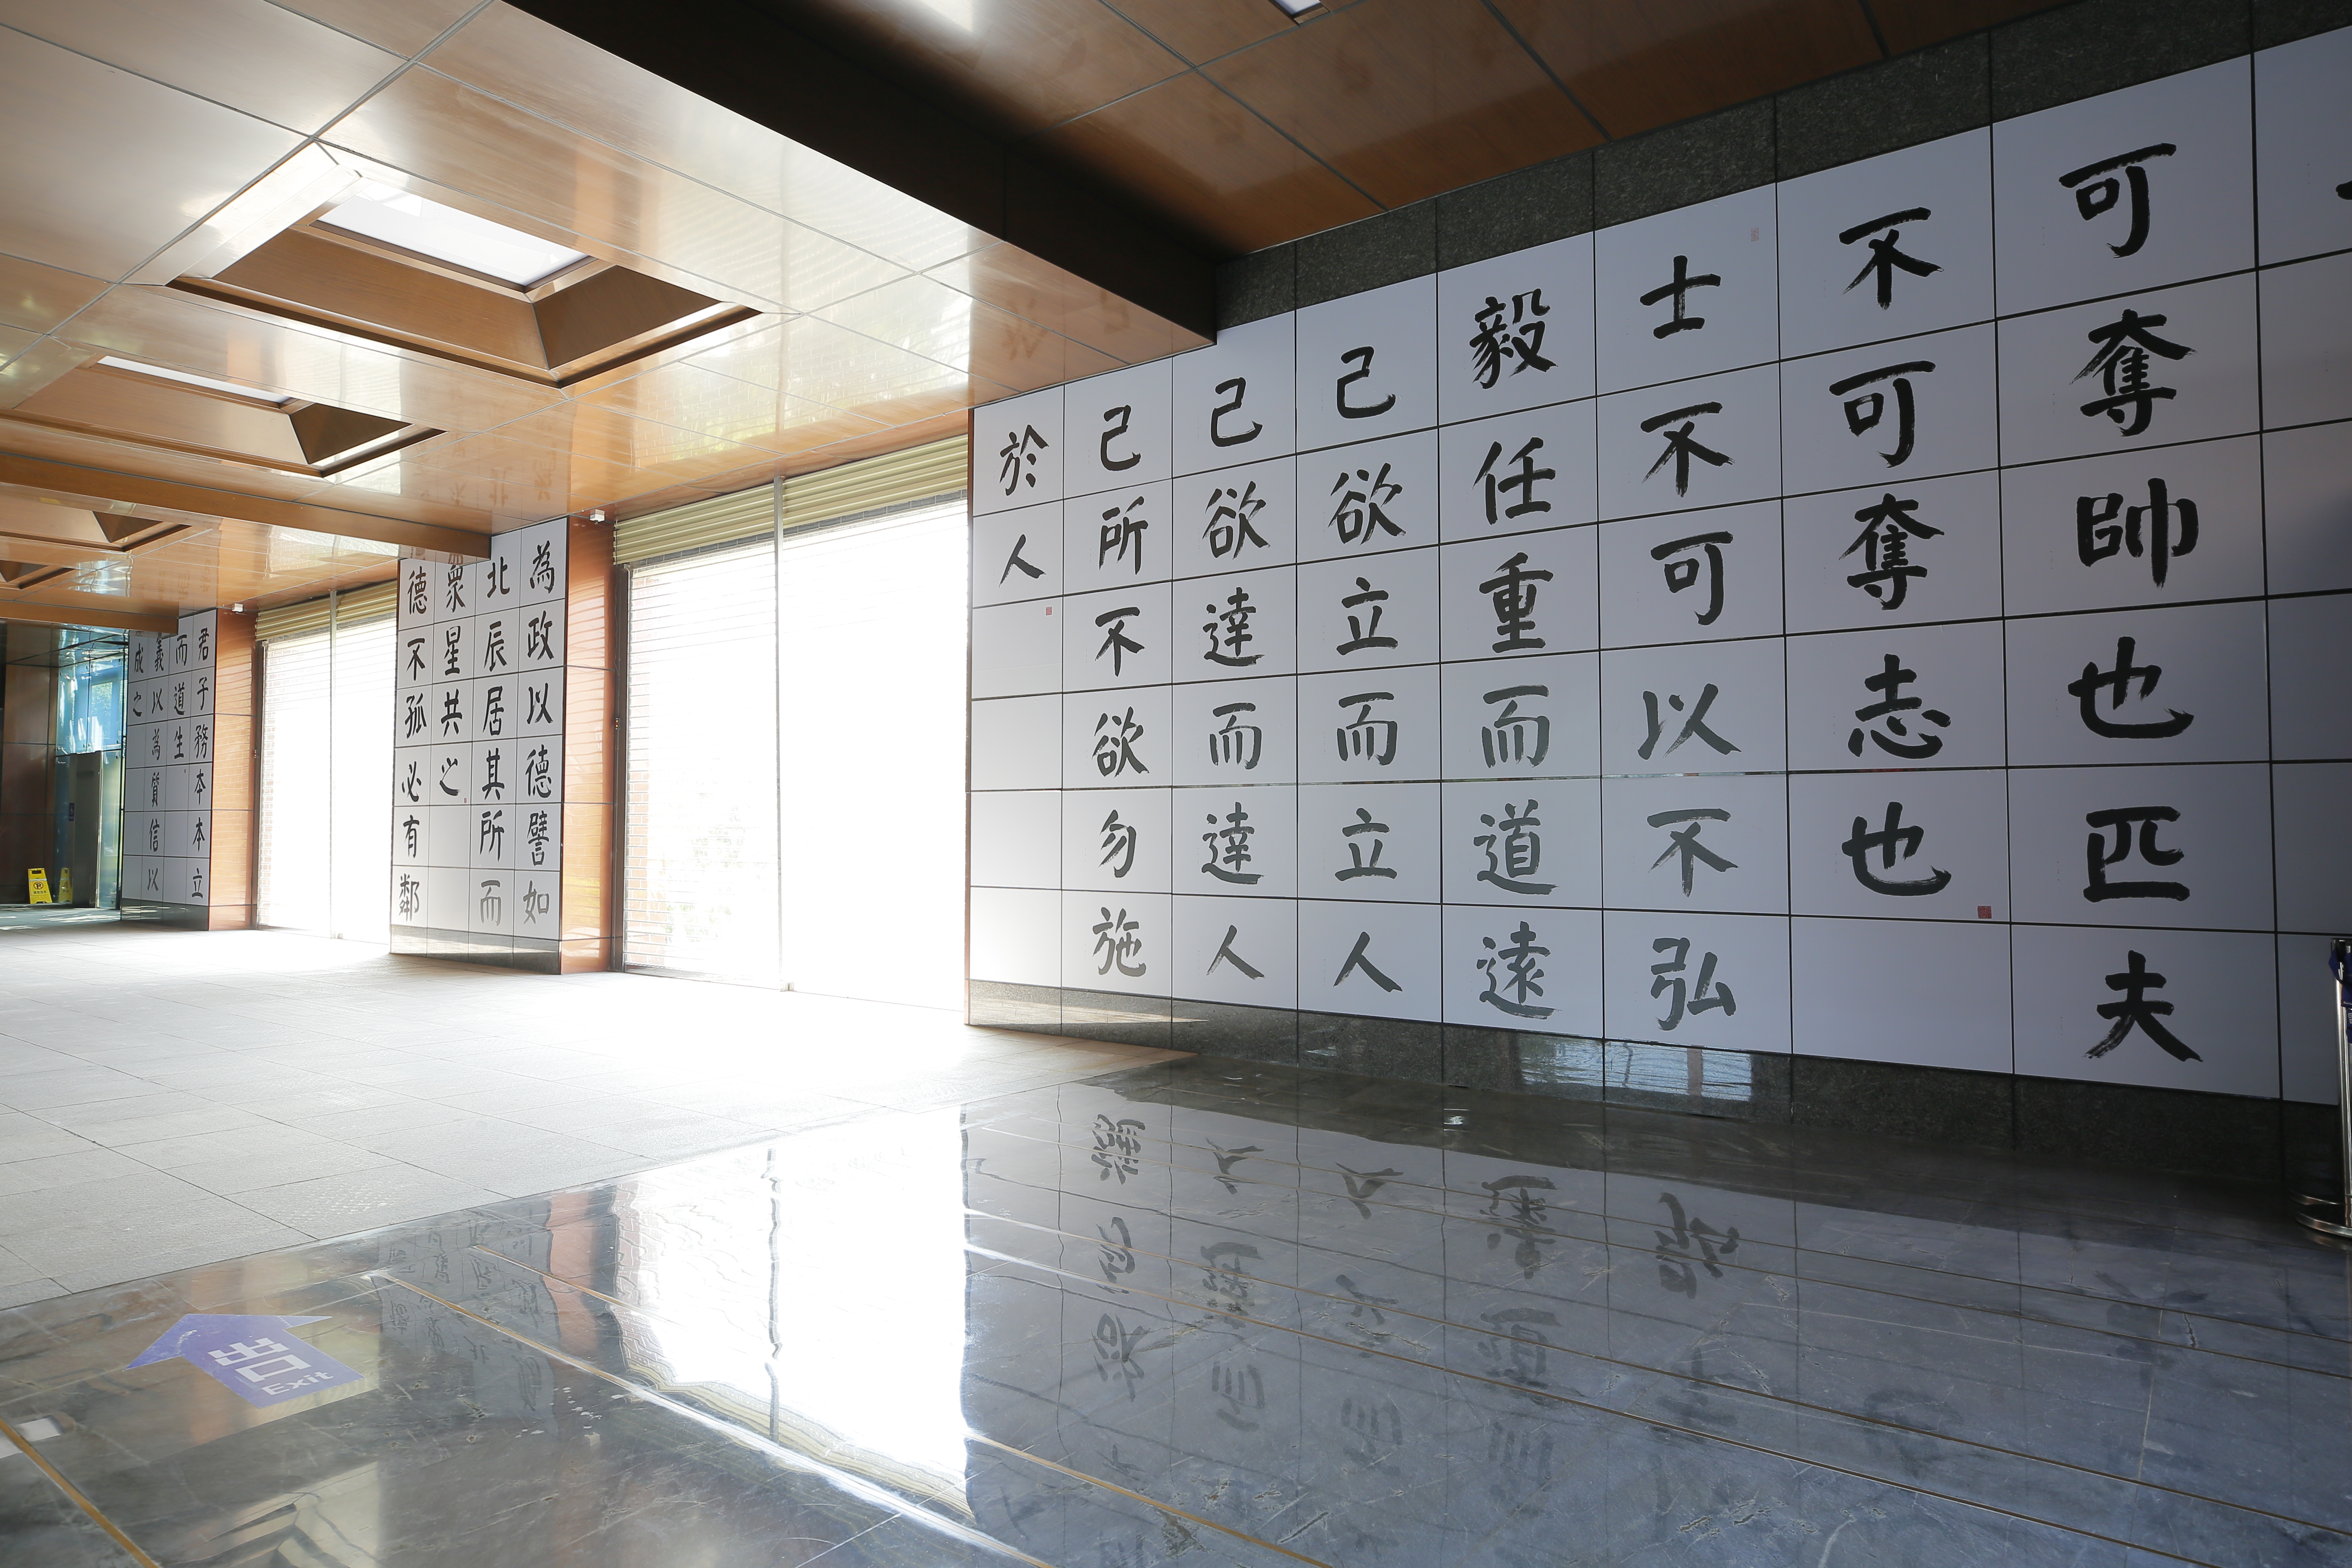 可奪帥也匹夫
不可奪志也
士不可以不弘
毅任重而道遠
己欲立而立人
己欲達而達人
己所不欲勿施
於人
為政以德譬如
北辰居其所而
眾星共之
德不孤必有鄰
君子務本本立
而道生
義以為質信以
成之
出口
Exit